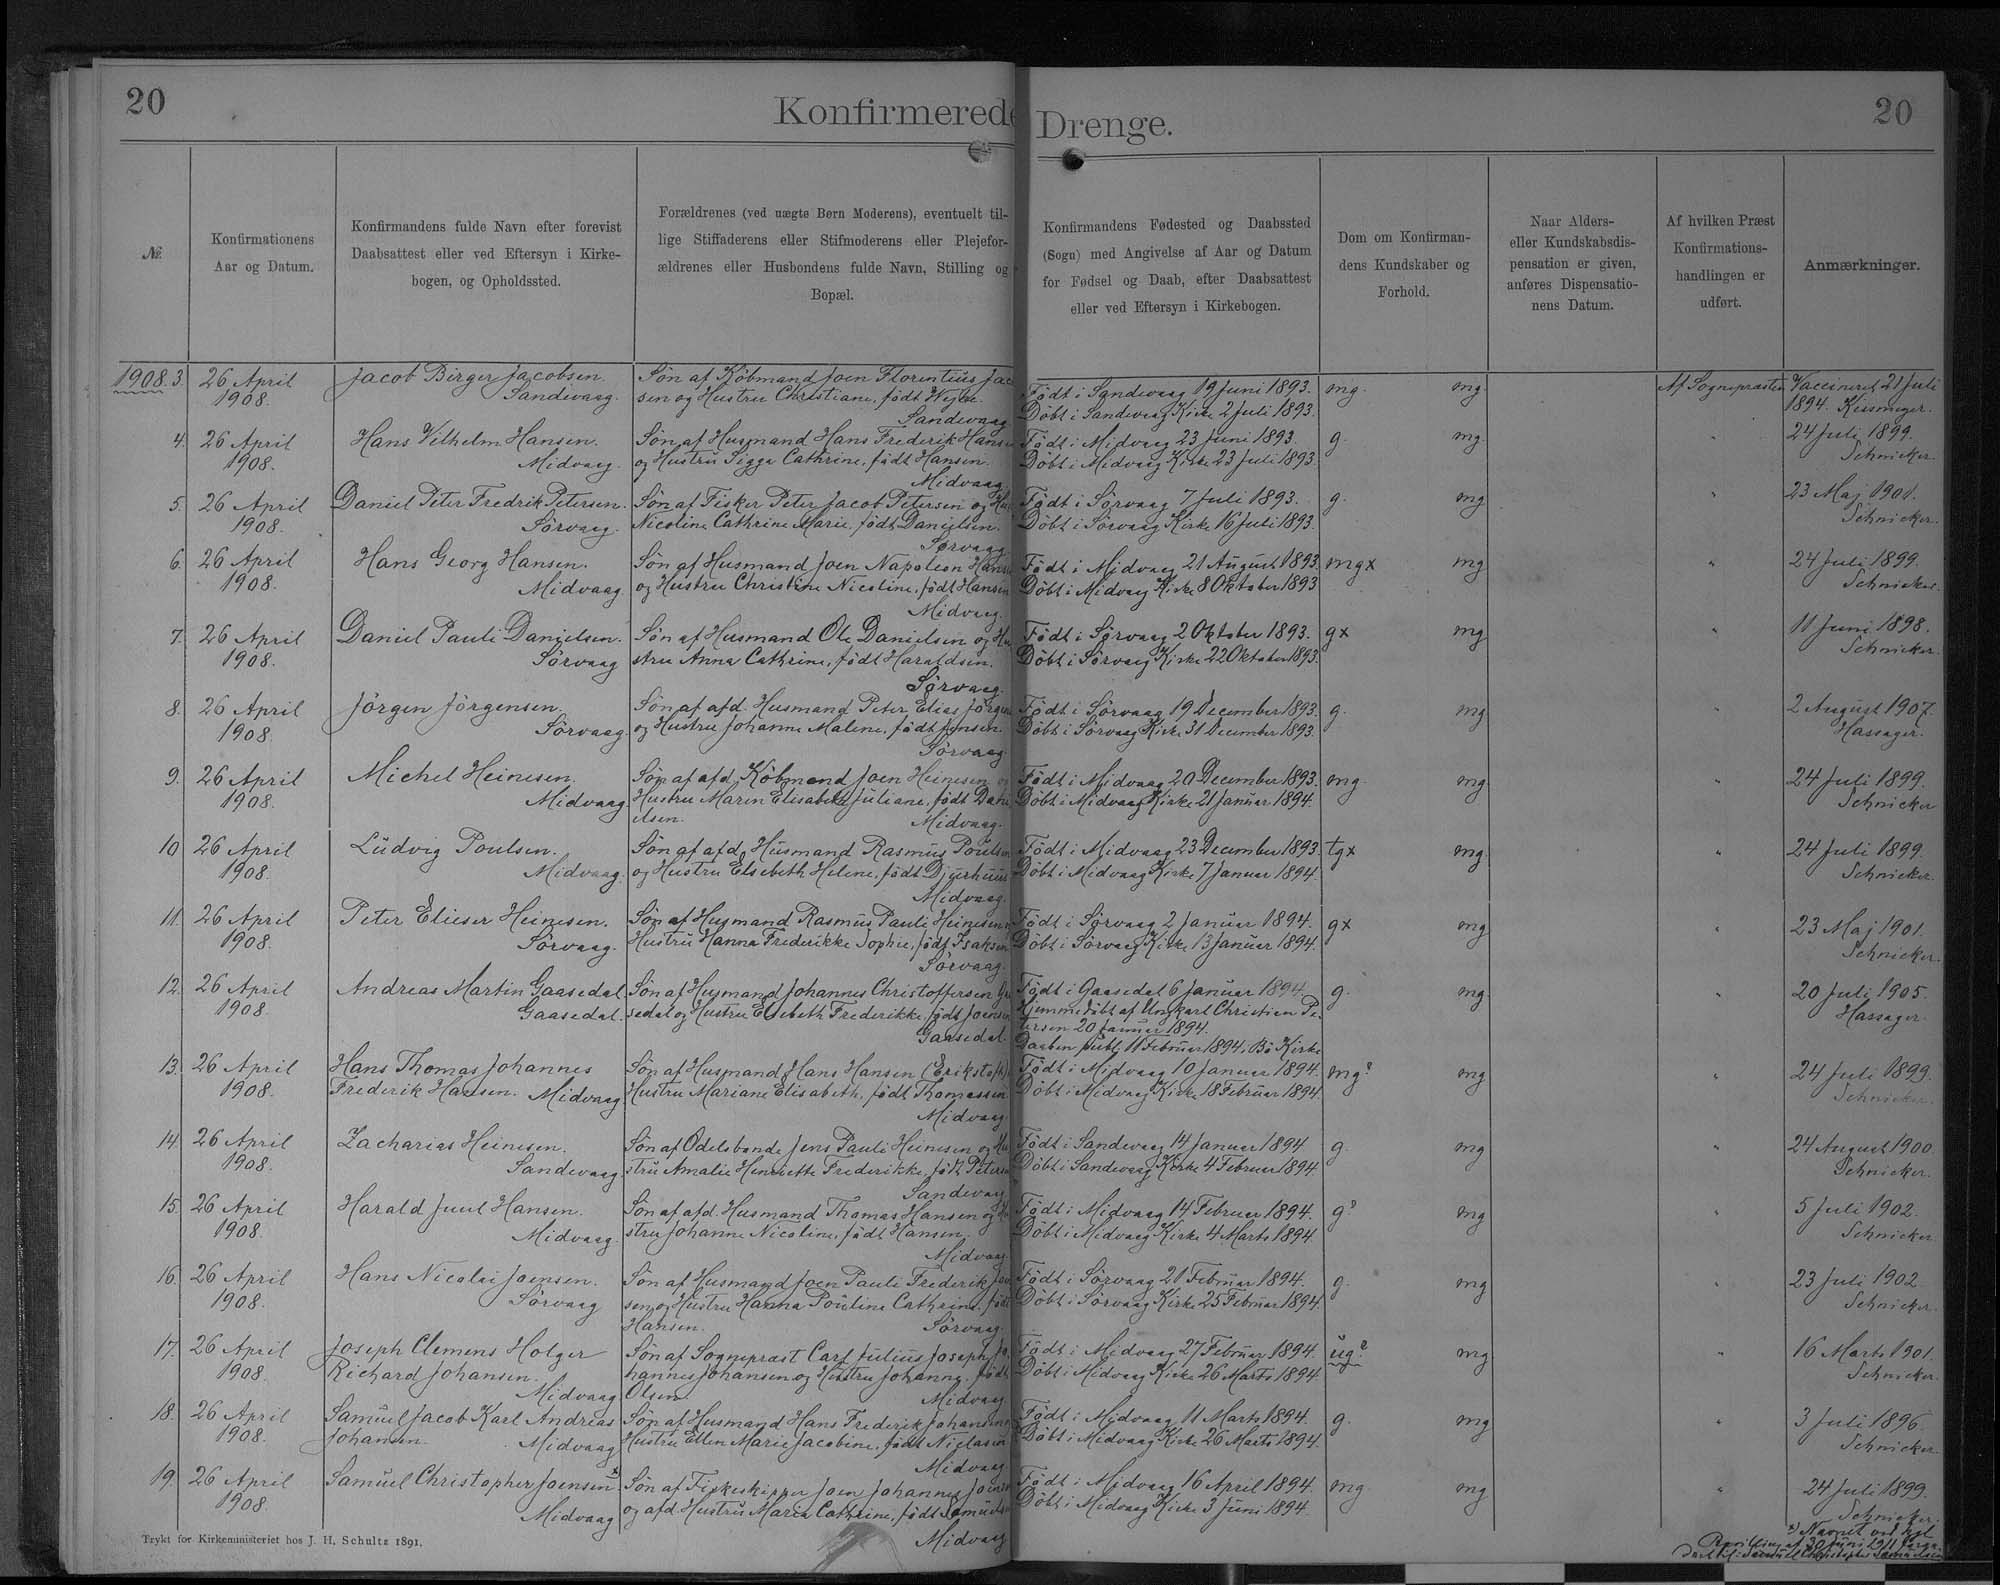 20
Konfirmerede Drenge.
20
№
Konfirmationens
Aar og Datum.
Konfirmandens fulde Navn efter forevist
Daabsattest eller ved Eftersyn i Kirke-
bogen, og Opholdssted.
Forældrenes (ved uægte Børn Moderens), eventuelt til-
lige Stiffaderens eller Stifmoderens eller Plejefor-
ældrenes eller Husbondens fulde Navn, Stilling og
Bopæl.
Konfirmandens Fødested og Daabssted
(Sogn) med Angivelse af Aar og Datum
for Fødsel og Daab, efter Daabsattest
eller ved Eftersyn i Kirkebogen.
Dom om Konfirman-
dens Kundskaber og
Forhold.
Naar Alders-
eller Kundskabsdis-
pensation er given,
anføres Dispensatio-
nens Datum.
Af hvilken Præst
Konfirmations-
handlingen er
udført.
Anmærkninger.
1908. 3. 26 April Jacob Birger Jacobsen. Søn af Købmand Joen Florentius Jac Født i Sandevaag 19 Juni 1893. mg. mg. Af Sognepræsten Vaccineret 21 Juli
1908. Sandevaag. sen og Hustru Christiane, født Døbt i Sandevaag Kirke 2 Juli 1893. 1894. Kissmeyer.
Sandevaag
4. 26 April Hans Vilhelm Hansen. Søn af Husmand Hans Frederik Hanse Født i Midvaag 23 Juni 1893. g. mg. " 24 Juli 1899.
1908. Midvaag. og Hustru Sigga Cathrine, født Hansen. Døbt i Midvaag Kirke 23 Juli 1893. Schnicker.
Midvaag.
5. 26 April Daniel Peter Fredrik Petersen. Søn af Fisker Peter Jacob Petersen og Hus Født i Sørvaag 7 Juli 1893. g. mg " 23 Maj 1901.
1908. Sørvaag. Nicoline Cathrine Marie, født Danielsen. Døbt i Sørvaag Kirke 16 Juli 1893. Schnicker.
Sørvaag.
6. 26 April Hans Georg Hansen. Søn af Husmand Joen Napoleon Hanse Født i Midvaag 21 August 1893. mgx mg " 24 Juli 1899.
1908. Midvaag og Hustru Christine Nicoline, født Hansen Døbt i Midvaag Kirke 8 Oktober 1893 Schnicker.
Midvaag.
7. 26 April Daniel Pauli Danielsen. Søn af Husmand Ole Danielsen og Hu Født i Sørvaag 2 Oktober 1893. gx mg " 11 Juni 1898.
1908. Sørvaag stru Anna Cathrine, født Haraldsen. Døbt i Sørvaag Kirke 22 Oktober 1893. Schnicker.
Sørvaag.
8. 26 April Jörgen Jörgensen. Søn af afd. Husmand Peter Elias Jörgen Født i Sørvaag 19 December 1893. g. mg " 2 August 1907.
1908. Sørvaag. og Hustru Johanne Malene, født Jensen. Døbt i Sørvaag Kirke 31 December 1893. Hassager.
Sørvaag
9. 26 April Michel Heinesen. Søn af afd. Købmand Joen Heinesen og Født i Midvaag 20 December 1893. mg. mg. " 24 Juli 1899.
1908. Midvaag Hustru Maren Elisabeth Juliane, født Dani Døbt i Midvaag Kirke 21 Januar 1894. Schnicker
elsen. Midvaag.
10 26 April Ludvig Poulsen. Søn af afd. Husmand Rasmus Poulsen Født i Midvaag 23 December 1893. tgx mg. " 24 Juli 1899.
1908. Midvaag. og Hustru Elsebeth Helene, født Djurhuus Døbt i Midvaag Kirke 7 Januar 1894. Schnicker.
Midvaag.
11. 26 April Peter Elieser Heinesen. Søn af Husmand Rasmus Pauli Heinesen Født i Sørvaag 2 Januar 1894. gx mg " 23 Maj 1901.
1908. Sørvaag. Hustru Hanna Frederikke Sophie, født Isaksen Døbt i Sørvaag Kirke 13 Januar 1894. Schnicker.
Sørvaag.
12. 26 April Andreas Martin Gaasedal Søn af Husmand Johannes Christoffersen Født i Gaasedal 6 Januar 1894. g. mg " 20 Juli 1905.
1908. Gaasedal. sedal og Hustru Elsebeth Frederikke, født Joensen Hjemmedøbt af Ungkarl Christian Pe- Hassager.
Gaasedal. tersen 20 Januar 1894.
Daaben publ. 11 Februar 1894 i Bø Kirke
13. 26 April Hans Thomas Johannes Søn af Husmand Hans Hansen Født i Midvaag 10 Januar 1894. mg? mg " 24 Juli 1899.
1908. Frederik Hansen. Midvaag Hustru Mariane Elisabeth, født Thomassen Døbt i Midvaag Kirke 18 Februar 1894. Schnicker.
Midvaag
14. 26 April Zacharias Heinesen. Søn af Odelsbonde Jens Pauli Heinesen og Hu Født i Sandevaag 14 Januar 1894 g. mg " 24 August 1900.
1908. Sandevaag stru Amalie Henriette Frederikke, født Petersen Døbt i Sandevaag Kirke 4 Februar 1894. Schnicker.
Sandevaag
15. 26 April Harald Juul Hansen. Søn af afd. Husmand Thomas Hansen og Hu Født i Midvaag 14 Februar 1894. g? mg " 5 Juli 1902.
1908. Midvaag. stru Johanne Nicoline, født Hansen. Døbt i Midvaag Kirke 4 Marts 1894. Schnicker.
Midvaag.
16. 26 April Hans Nicolai Joensen. Søn af Husmand Joen Pauli Frederik Joen Født i Sørvaag 21 Februar 1894. g. mg " 23 Juli 1902
1908. Sørvaag sen og Hustru Hanna Pouline Cathrine, født Døbt i Sørvaag Kirke 25 Februar 1894. Schnicker.
Hansen. Sørvaag.
17. 26 April Joseph Clemens Holger Søn af Sognepræst Carl Julius Joseph Jo Født i Midvaag 27 Februar 1894. ug? mg " 16 Marts 1901.
1908. Richard Johansen. hannes Johansen og Hustru Johanne, født Døbt i Midvaag Kirke 26 Marts 1894. Schnicker.
Midvaag Olsen Midvaag.
18. 26 April Samuel Jacob Karl Andreas Søn af Husmand Hans Frederik Johansen Født i Midvaag 11 Marts 1894. g. mg " 3 Juli 1896.
1908. Johansen. Midvaag Hustru Ellen Marie Jacobine, født Niclasen Døbt i Midvaag Kirke 26 Marts 1894. Schnicker.
Midvaag
19. 26 April Samuel Christopher Joensen x) Søn af Fiskeskipper Joen Johannes Joensen Født i Midvaag 16 April 1894. mg. mg " 24 Juli 1899.
1908. Midvaag og afd. Hustru Maria Cathrine, født Samuelsen Døbt i Midvaag Kirke 3 Juni 1894. Schnicker.
Midvaag
x) Navnet ved kgl.
Bevilling af 30 Juni 1911 foran-
dret til: Samuel Christopher Samuelsen
Trykt for Kirkeministeriet hos J. H. Schultz 1891.